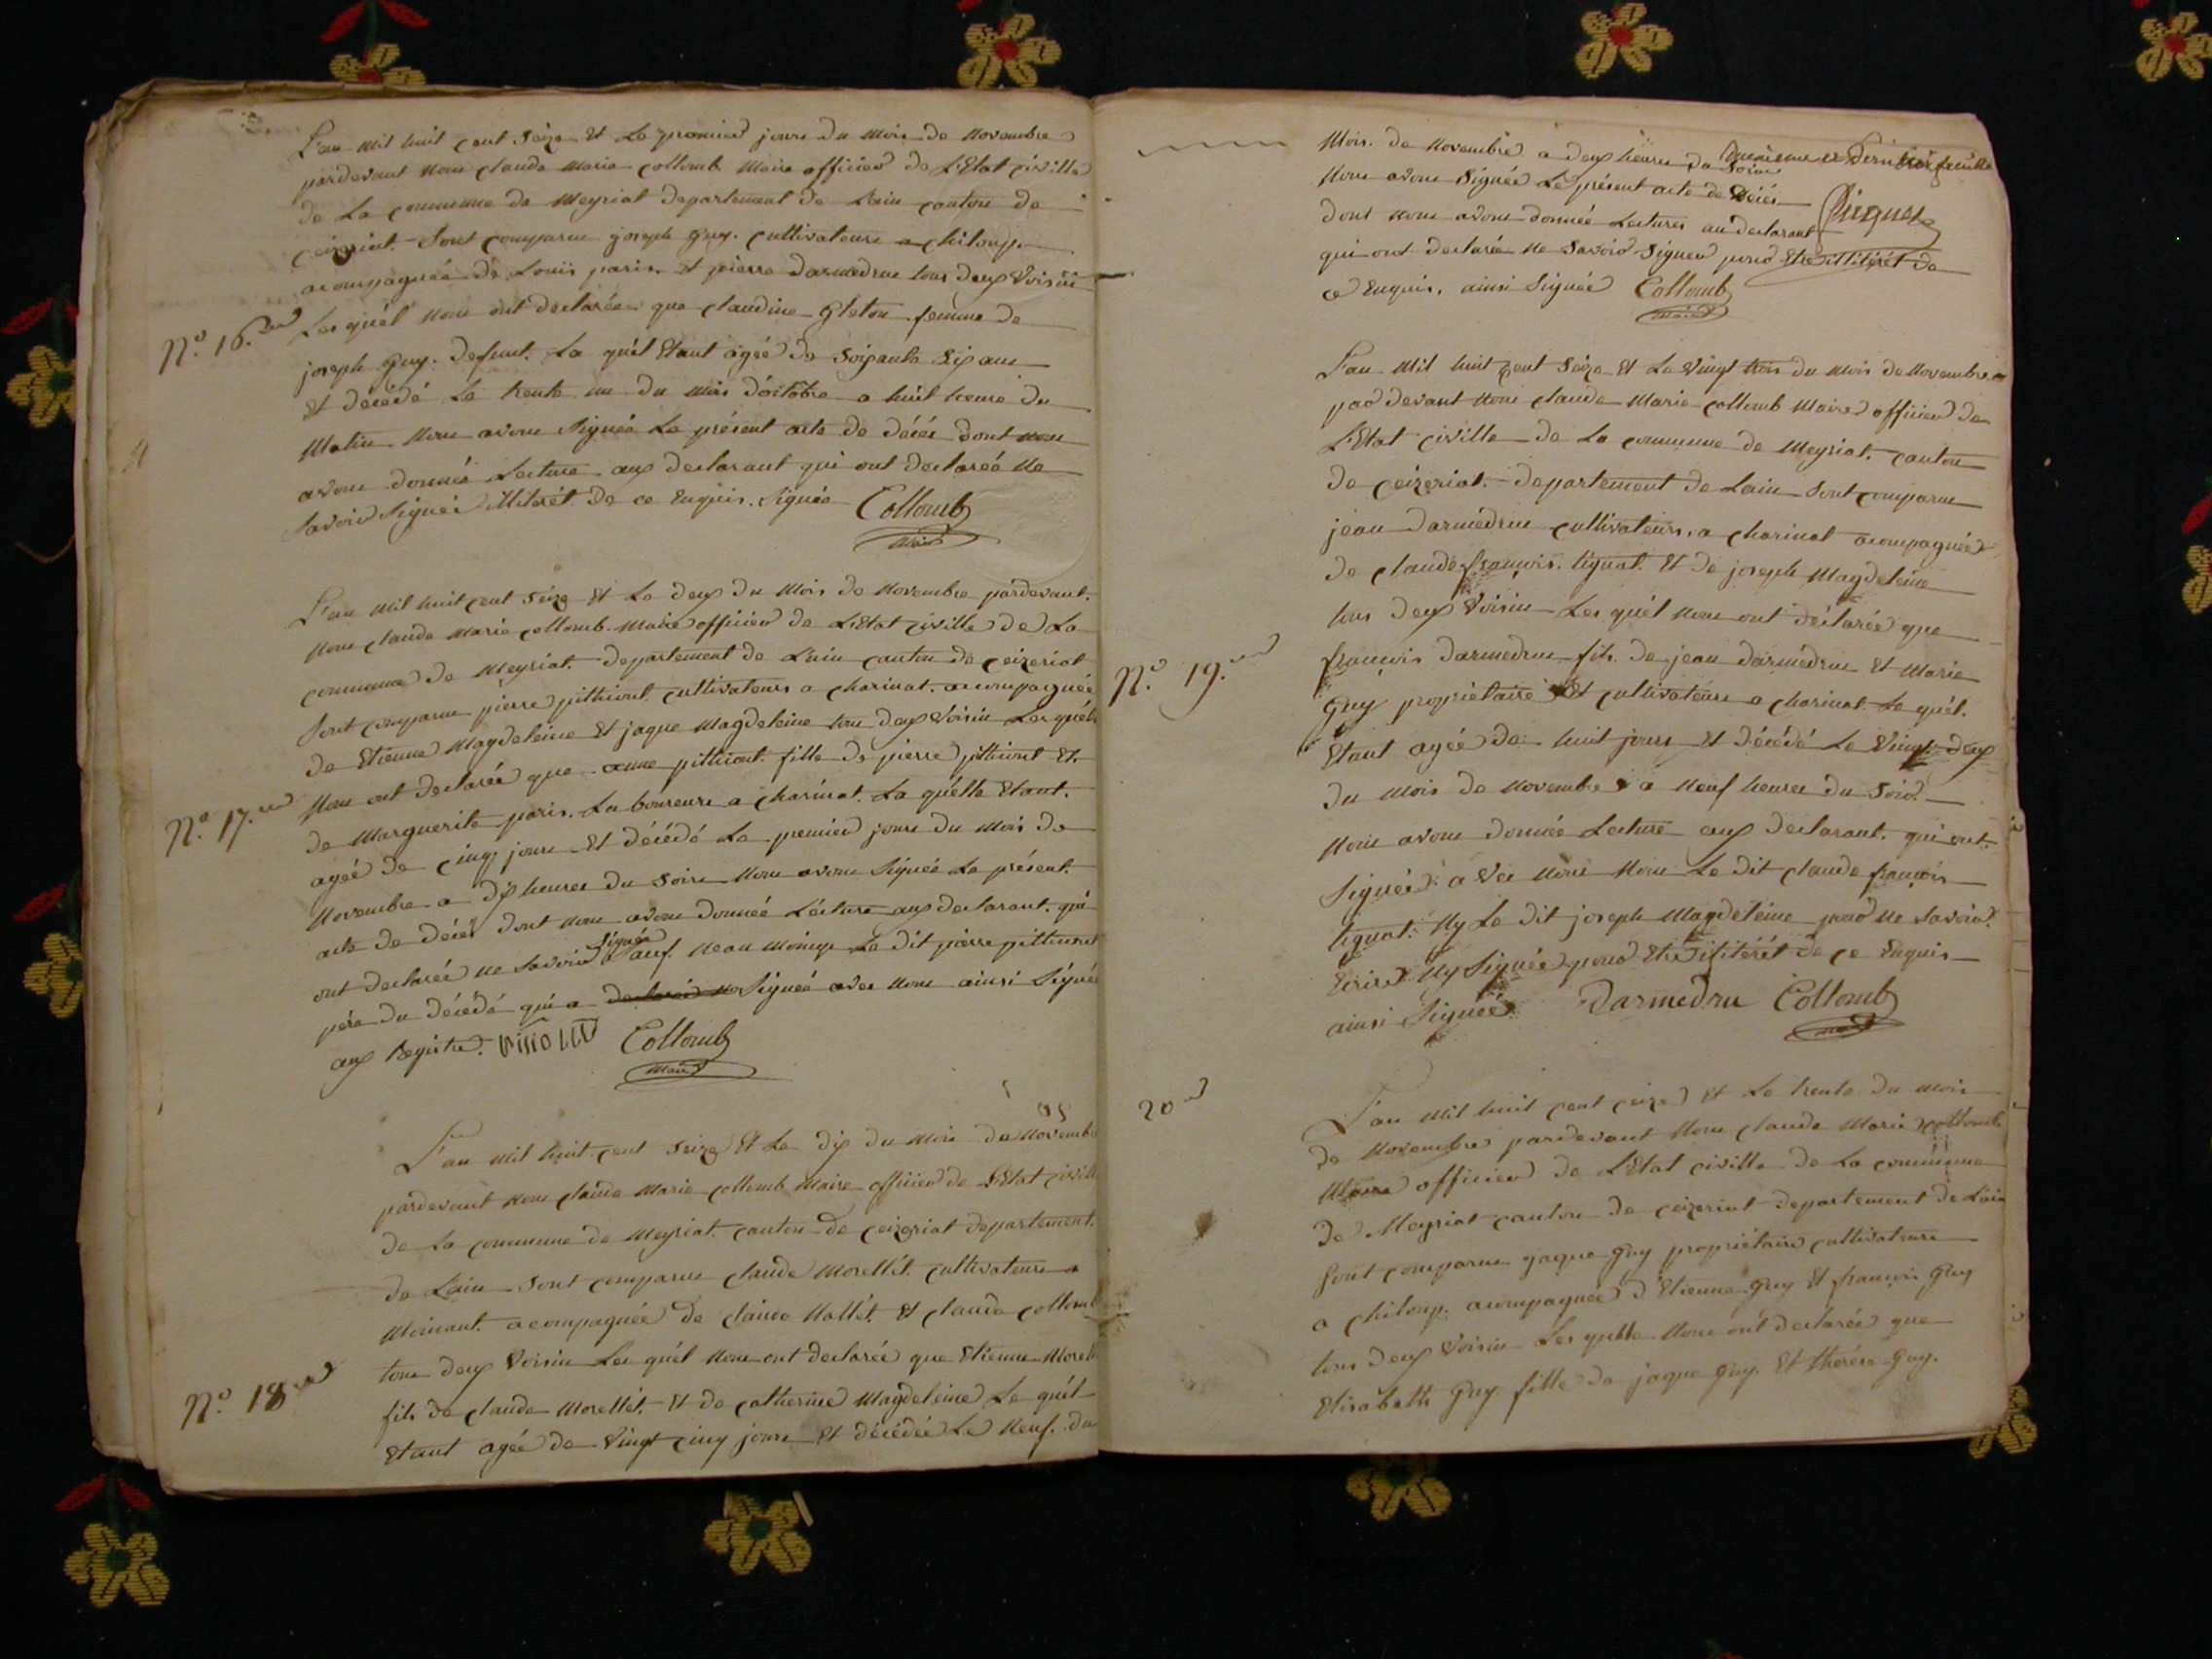 L'an mil huit cent Seize Et Le premier jours du Mois de Novembre
pardevant Nous claude Marie collomb Maire officier de L'Etat civille
de La commune de Meyriat departement de Lain canton de
ceizeriat. Sont comparue joseph Guy. cultivateurs a chiloup.
acompagnée de Louis paris. Et pierre darmedrue tous deux Voisin
Nº. 16.
Les quél Nous ont declarée que claudine Gleton femme de
joseph Guy. defunt. La quél Etant agée de Soixante Six ans
Et décédé Le trente un du Mois d'octobre a huit heure du
Matin. Nous avons Signée Le présent acte de décés dont Nous
avons donnée Lecture aux declarant qui ont declarée Ne
Savoir Signer illiterét de ce Enquis. Signée Collomb
Maire
L'an Mil huit cent Seize Et Le deux du Mois de Novembre pardevant.
Nous claude Marie collomb. Maire officier de L'Etat civille de La
commune de Meyriat. departement de Lain canton de ceizeriat
Sont comparue pierre pithiout cultivateurs a charinat. acompagnée
de Etienne Magdeleine Et jaque Magdeleine tous deux Voisin Les quéls
Nº. 17.
Nous ont declarée que anne pithiout. fille de pierre pithiout Et.
de Marguerite paris. Laboureurs a charinat. La quélle Etant.
agée de cinq jours Et décédé Le premier jours du Mois de
Novembre a dix heures du Soire Nous avons Signée Le présent.
acte de décés dont Nous avons donnée Lécture aux declarant. qui
ont declarée Ne Savoir Signée Sauf. Neau Moinx Le dit pierre pithiout
pére du décédé qui a declarée Ne Signée avec Nous ainsi Signée
aux Registre. Collomb
Maire
L'an Mil huit. cent Seize Et Le dix du Mois de Novembre
pardevant Nous claude Marie collomb Maire officier de L'Etat civille
de La commune de Meyriat. canton de ceizeriat departement.
de Lain Sont comparue claude Morellét. cultivateurs a
Moinant. acompagnée de claude Nallét. Et claude collomb
tous deux Voisin Les quél Nous ont declarée que Etienne Morell
Nº 18
fils de claude Morellét. Et de catherine Magdeleine Le quél
Etant agée de Vingt cinq jours Et décédée Le Neuf. du
Mois. de Novembre a deux heures du Soire
Douzieme et Derniere feuille
Nous avons Signée Le présent acte de Décés
dont Nous avons donnée Lectures au declarant
qui ont declarée Ne Savoir Signer pour Etre illitérét de
ce Enquis. ainsi Signée Collomb
Maire
L'an Mil huit cent Seize Et Le Vingt trois du Mois de Novembre
par devant Nous claude Marie collomb Maire officier de
L'Etat civille de La commune de Meyriat. canton
de ceizeriat. departement de Lain Sont comparue
jean darmédrue cultivateurs. a charinat acompagnée
de claude françois. tignat. Et de joseph Magdeleine
tous deux Voisin Les quél Nous ont déclarée que
Nº. 19.
françois darmedrue fils. de jean darmédrue Et Marie
Guy propriétaire Et cultivateurs a charinat. Le quél.
Etant agée de huit jours Et décédé Le Vingt deux
du Mois de Novembre a Neuf heures du Soir.
Nous avons donnée Lecture aux declarant. qui ont.
Signée avec Nous Nous Le dit claude françois
tignat. Ny Le dit joseph Magdeleine pour ne Savoir
Ecrire Ny Signée pour Etre ilitérét de ce Enquis
ainsi Signée. Darmedru Collomb
20
L'an Mil huit cent ceize Et Le trente du Mois
de Novembre pardevant Nous claude Marie collomb
Maire officier de L'Etat civille de La commune
de Meyriat canton de ceizeriat departement de Lain
Sont comparue jaque Guy propriétaire cultivateurs
a chiloup. acompagnée d'Etienne Guy Et françois Guy
tous deux Voisin Les quélle Nous ont declarée que
Elisabeth Guy. fille de jaque Guy. Et thérése Guy.